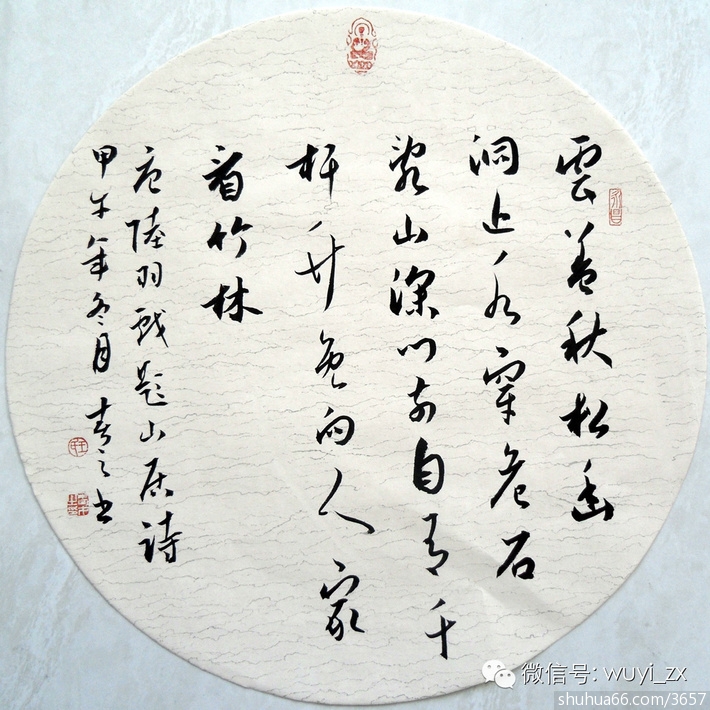 雲蓋秋松幽
洞近水穿危石
亂山深门前自有千
杆竹免向人家
看竹林
唐陸羽戏题山居詩
甲午年冬月 之书
微信号: wuyi_zx
shuhua66.com/3657